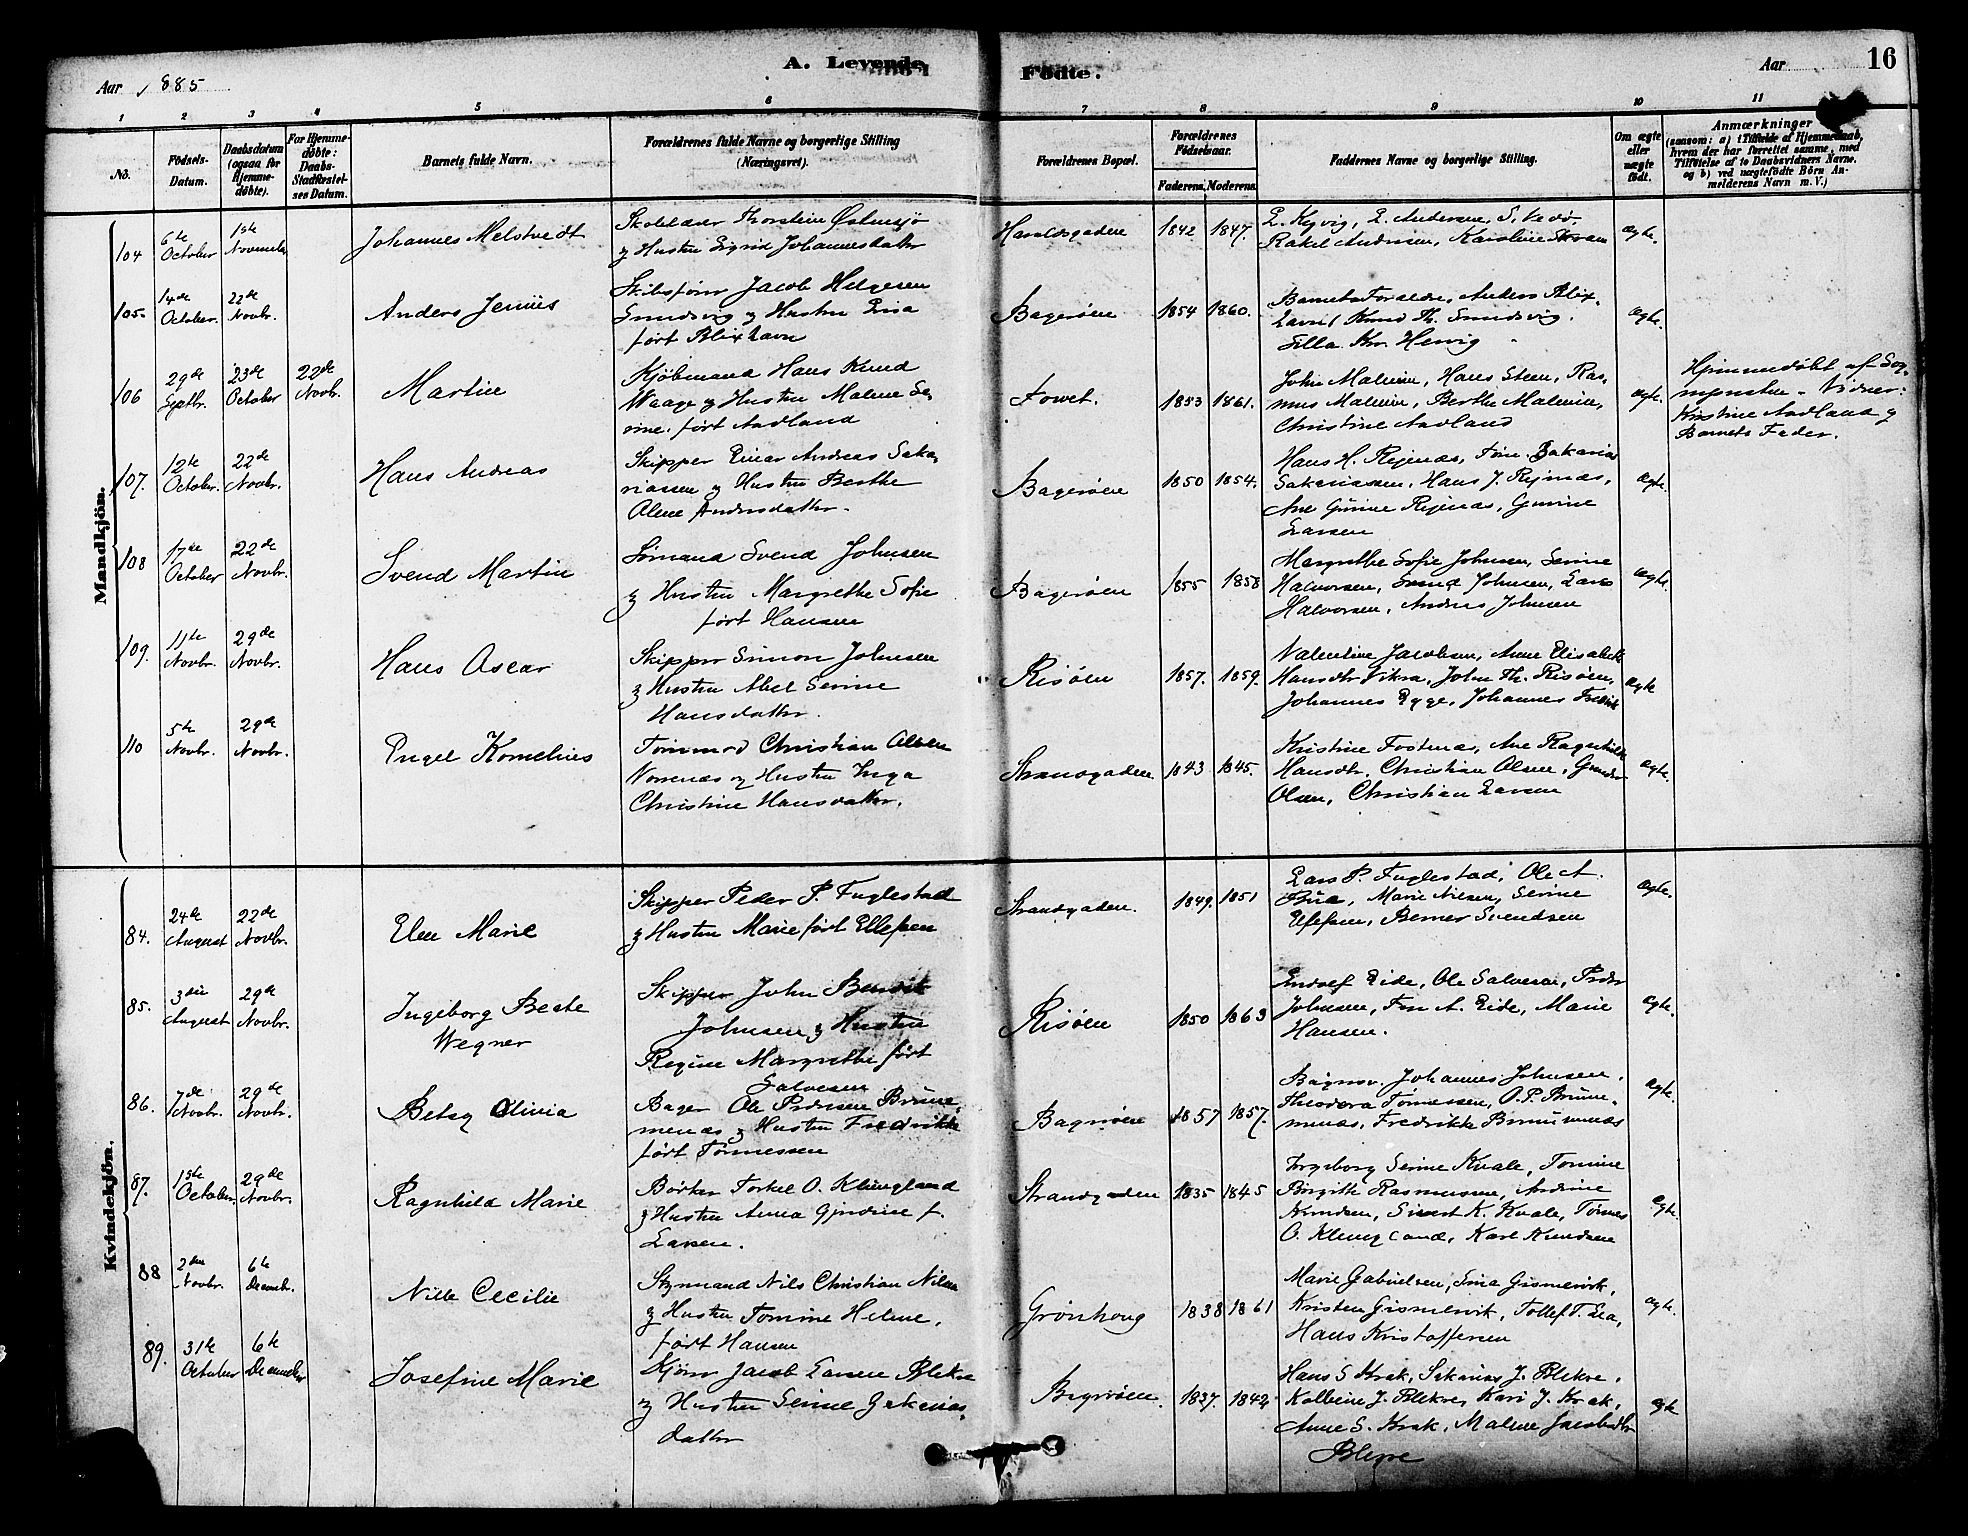 A. Levende Födte.
16
Aar 1885
Aar
1 2 3 4 5 6 7 8 9 10 11
No.
Födsels-Datum.
Daabsdatum (ogsaa for Hjemme-döbte).
For Hjemme-döbte: Daabs-Stadfæstel-ses Datum.
Barnets fulde Navn.
Forældrenes fulde Navne og borgerlige Stilling (Næringsvei).
Forældrenes Bopæl.
Forældrenes Födselsaar.
Faderens. Moderens.
Faddernes Navne og borgerlige Stilling.
Om ægte eller uægte födt.
Anmærkninger
(saasom: a) i Tilfælde af Hjemmedaab,
hvem der har forrettet samme, med
Tilföielse af to Daabsvidners Navne.
og b) ved uægtefödte Börn An-
melderens Navn m. V.)
Mandkjön.
104 6te October 1ste November
Johannes Melstvedt
Skolelærer Thorstein Østensjø
og Hustru Sigrid Johannesdatter
Haraldsgaden 1842 1847.
Rakel Andersen, Karoline
Ægte.
105 14de October. 22de Novbr.
Anders Jenius
Skibsfører Jacob Helgesen
Smedsvig og Hustru Lisa
født Blixhavn
Bagerøen 1854 1860.
Barnets Forældre, Anders Blix-
havn, Knud Th. Smedsvig.
Ægte.
106 29de Septbr. 23de October 22de Novbr.
Martin
Kjøbmand Hans Knud
Waage og Hustru Malene Se-
rine født Aadland
Torvet. 1853 1861.
John Malmin, Hans Steen, Ras-
mus Malmin, Berthe Malmin,
Christine Aadland
Ægte.
Hjemmedøbt af Sog-
nepresten. Vidner:
Kristine Aadland og
Barnets Fader.
107. 12te October. 22de Novbr.
Hans Andreas
Skipper Einar Andreas Saka-
riassen og Hustru Berthe
Oline Andersdatter.
Bagerøen 1850 1854.
Sakariassen, Hans J. Rejnæs,
Larsen
Ægte.
108 17de October 22de Novbr.
Svend Martin
Sømand Svend Johnsen
og Hustru Margrethe Sofie
født Hansen
Bagerøen 1855 1858
Margrethe Sofie Johnsen, Serine
Halvorsen, Svend Johnsen, Lars
Halvorsen, Anders Johnsen
Ægte.
109. 11te Novbr. 29de Novbr.
Hans Oscar
Skipper Simon Johnsen
og Hustru Abel Serine
Hansdatter.
Risøen 1857. 1859.
Valentine Jacobsen, Anne Elisabeth
Hansdtr Vikra, John Th. Risøen,
Johannes Rygge, Johannes Fredrik
Ægte
110 5te Novbr. 29de Novbr.
Engel Kornelius
Tømmerm. Christian Olsen
Nornæs og Hustru Inga
Christine Hansdatter.
Strandgaden 1843 1845.
Kristine Fostenæs, Ane Ragnhilde
Hansdtr. Christian Olsen,
Olsen, Christian Larsen
Ægte.
Kvindekjön.
84. 24de August 22de Novbr.
Elen Marie
Skipper Peder P. Fuglestad
og Hustru Marie født Ellefsen
Strandgaden. 1849. 1851
Lars P. Fuglestad, Ole A.
Bua, Marie Nilsen, Serine
Ellefsen, Berner Svendsen
Ægte.
85. 3die August 29de Novbr.
Ingeborg Beate
Wegner
Skipper John Bendik
Johnsen og Hustru
Regine Margrethe født
Salvesen
Risøen 1850 1863
Endref Eide, Ole Salvesen, Peder
Johnsen, A. Eide, Marie
Hansen.
Ægte.
86. 7de Novbr. 29de Novbr.
Betsy Olivia
Bager Ole Pedersen Brüne-
menæs og Hustru Fredrikke
født Tønnessen
Bagerøen 1857 1857.
Johannes Johnsen,
Theodora Tønnessen, O. P. Brüne-
menæs, Fredrikke Brünemenæs
Ægte.
87. 1ste October. 29de Novbr.
Ragnhild Marie
Bødker Torkel O. Klungland
og Hustru Anna Gjurine f.
Larsen.
Strandgaden 1835 1845
Ingeborg Serine Kvale, Tomine
Birgitte Rasmussen, Andrine
Knudsen, Sivert K. Kvale, Tønnes
O. Klungland, Karl Knudsen
Ægte.
88 2den Novbr. 6te Decembr.
Nille Cecilie
Styrmand Nils Christian Nilsen
og Hustru Tomine Helene,
født Hansen
Grønhoug 1838 1861
Marie Gabrielsen, Gismervik,
Kristen Gismervik, Tollef T. Lea,
Hans Kristoffersen
Ægte.
89. 31te October 6te December
Josefine Marie
Kjører Jacob Larsen Blekve
og Hustru Serine Zakarias-
datter
Bagerøen. 1837. 1842
Hans S Krak, Sakarias J. Blekve,
Kolbein J. Blekve, Kari J. Krak,
Anne S. Krak, Malene Jacobsdtr
Blekve
Ægte